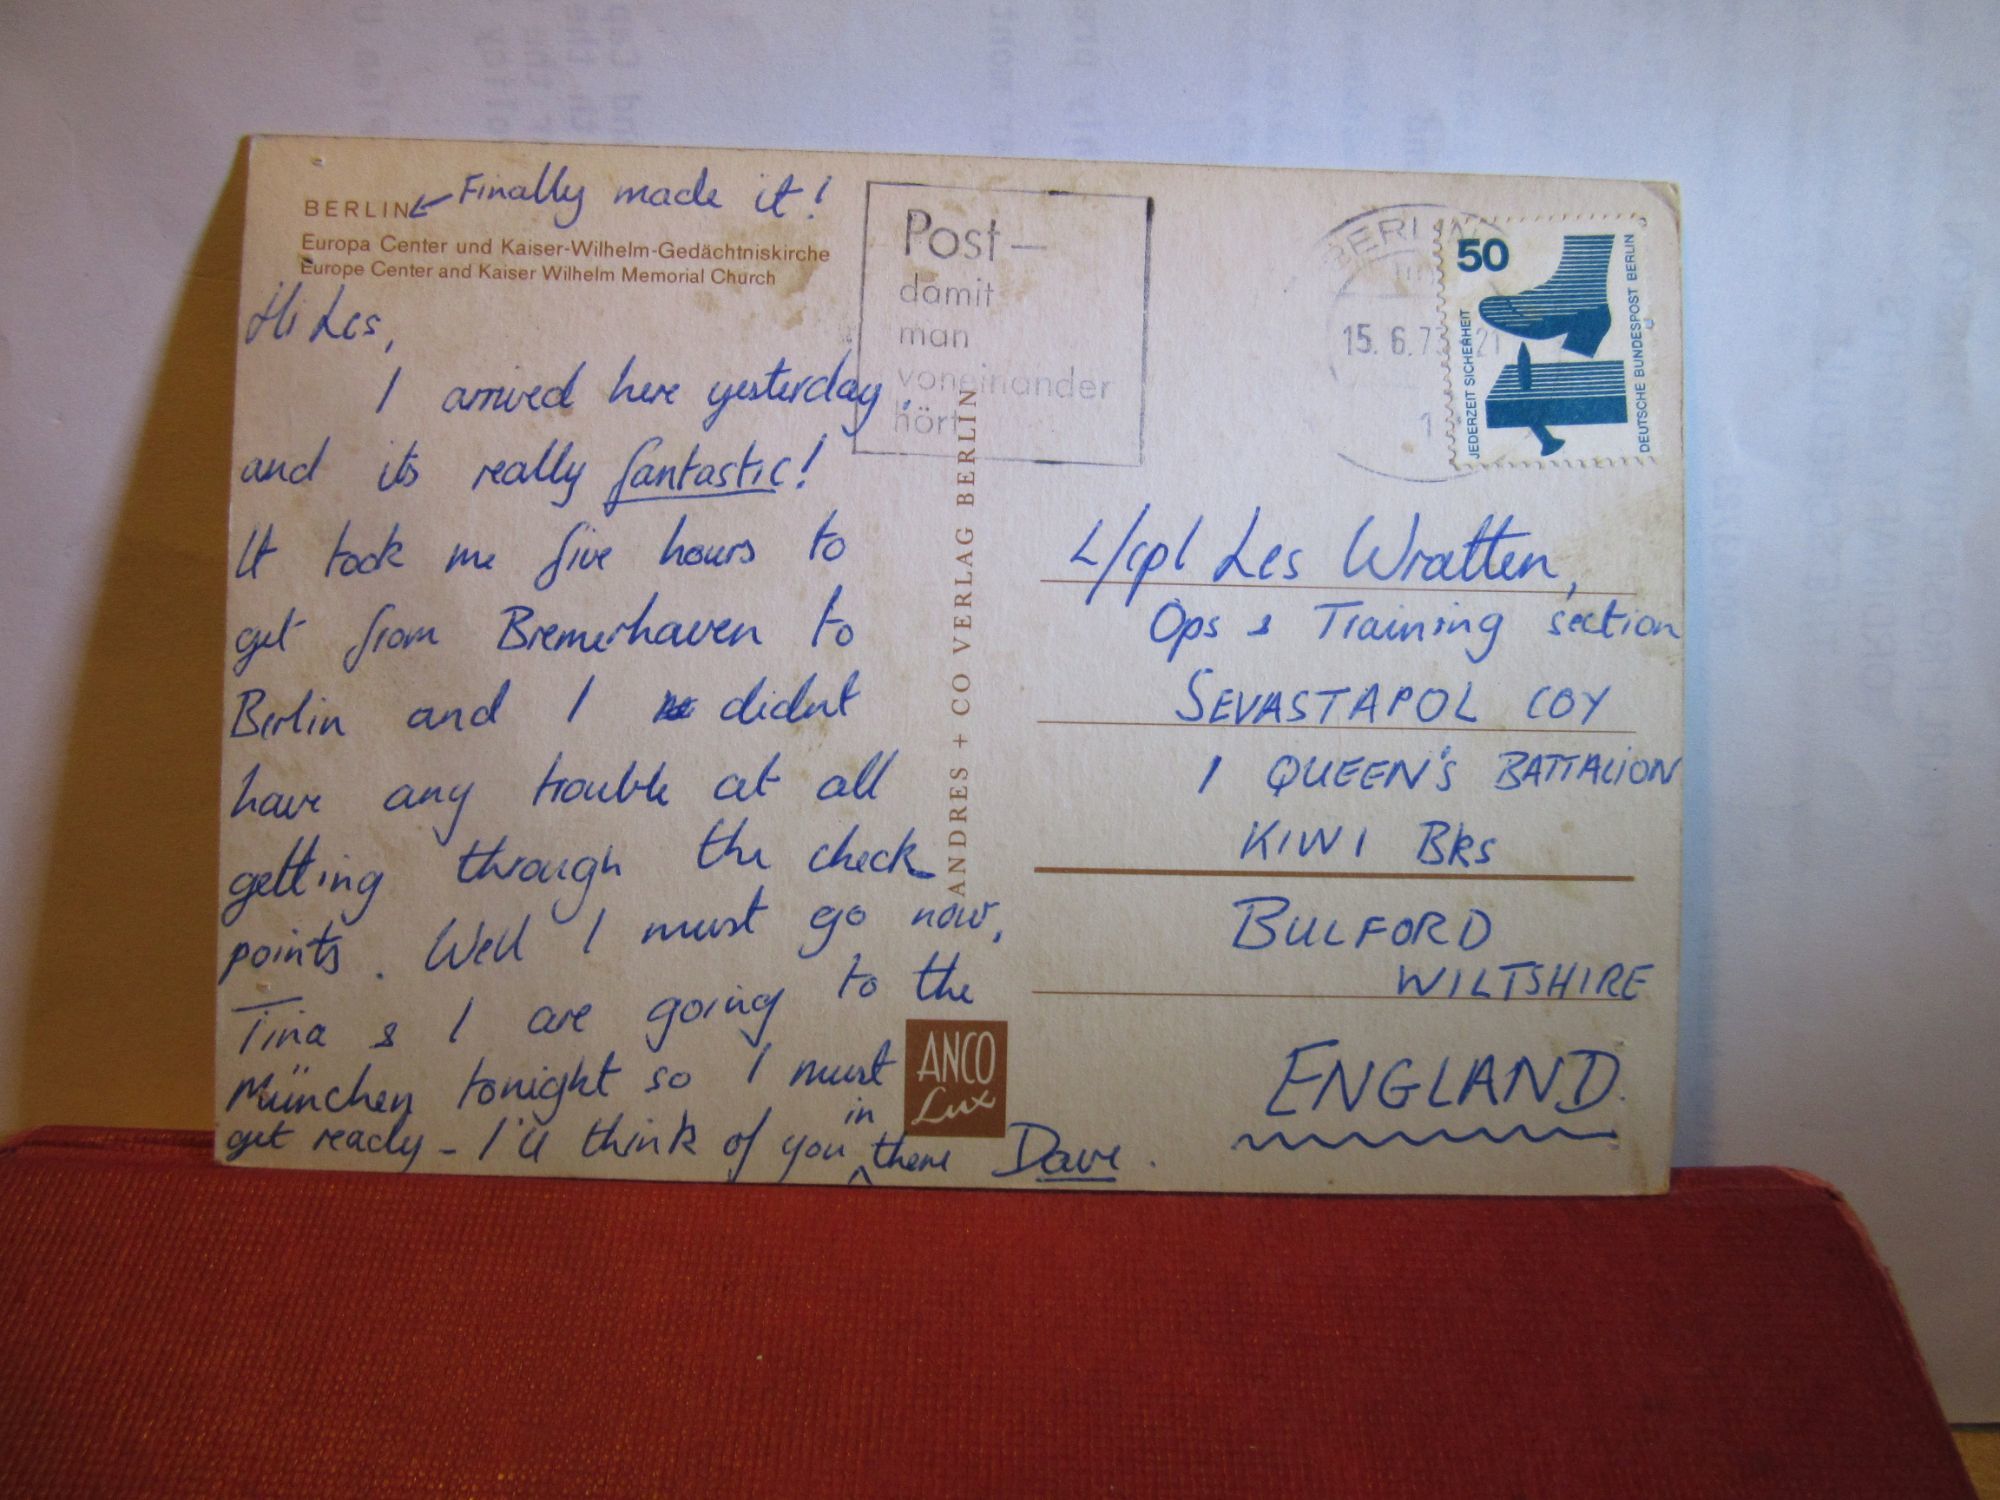 BERLIN ← Finally made it!
Europa Center und Kaiser-Wilhelm-Gedächtniskirche
Europe Center and Kaiser Wilhelm Memorial Church
Hi Les,
I arrived here yesterday
and its really fantastic!
It took me five hours to
get from Bremerhaven to
Berlin and I didnt
have any trouble at all
getting through the check
points. Well I must go now,
Tina & I are going to the
München tonight so I must
get ready - I'll think of you in there Dave.
ANDRES + CO VERLAG BERLIN
ANCO
Lux
Post-
damit
man
voneinander
hört
BERLIN
15. 6. 7 21
1
50
JEDERZEIT SICHERHEIT
DEUTSCHE BUNDESPOST BERLIN
L/cpl Les Wratten,
Ops & Training section
SEVASTAPOL COY
1 QUEEN'S BATTALION
KIWI Bks
BULFORD
WILTSHIRE
ENGLAND.